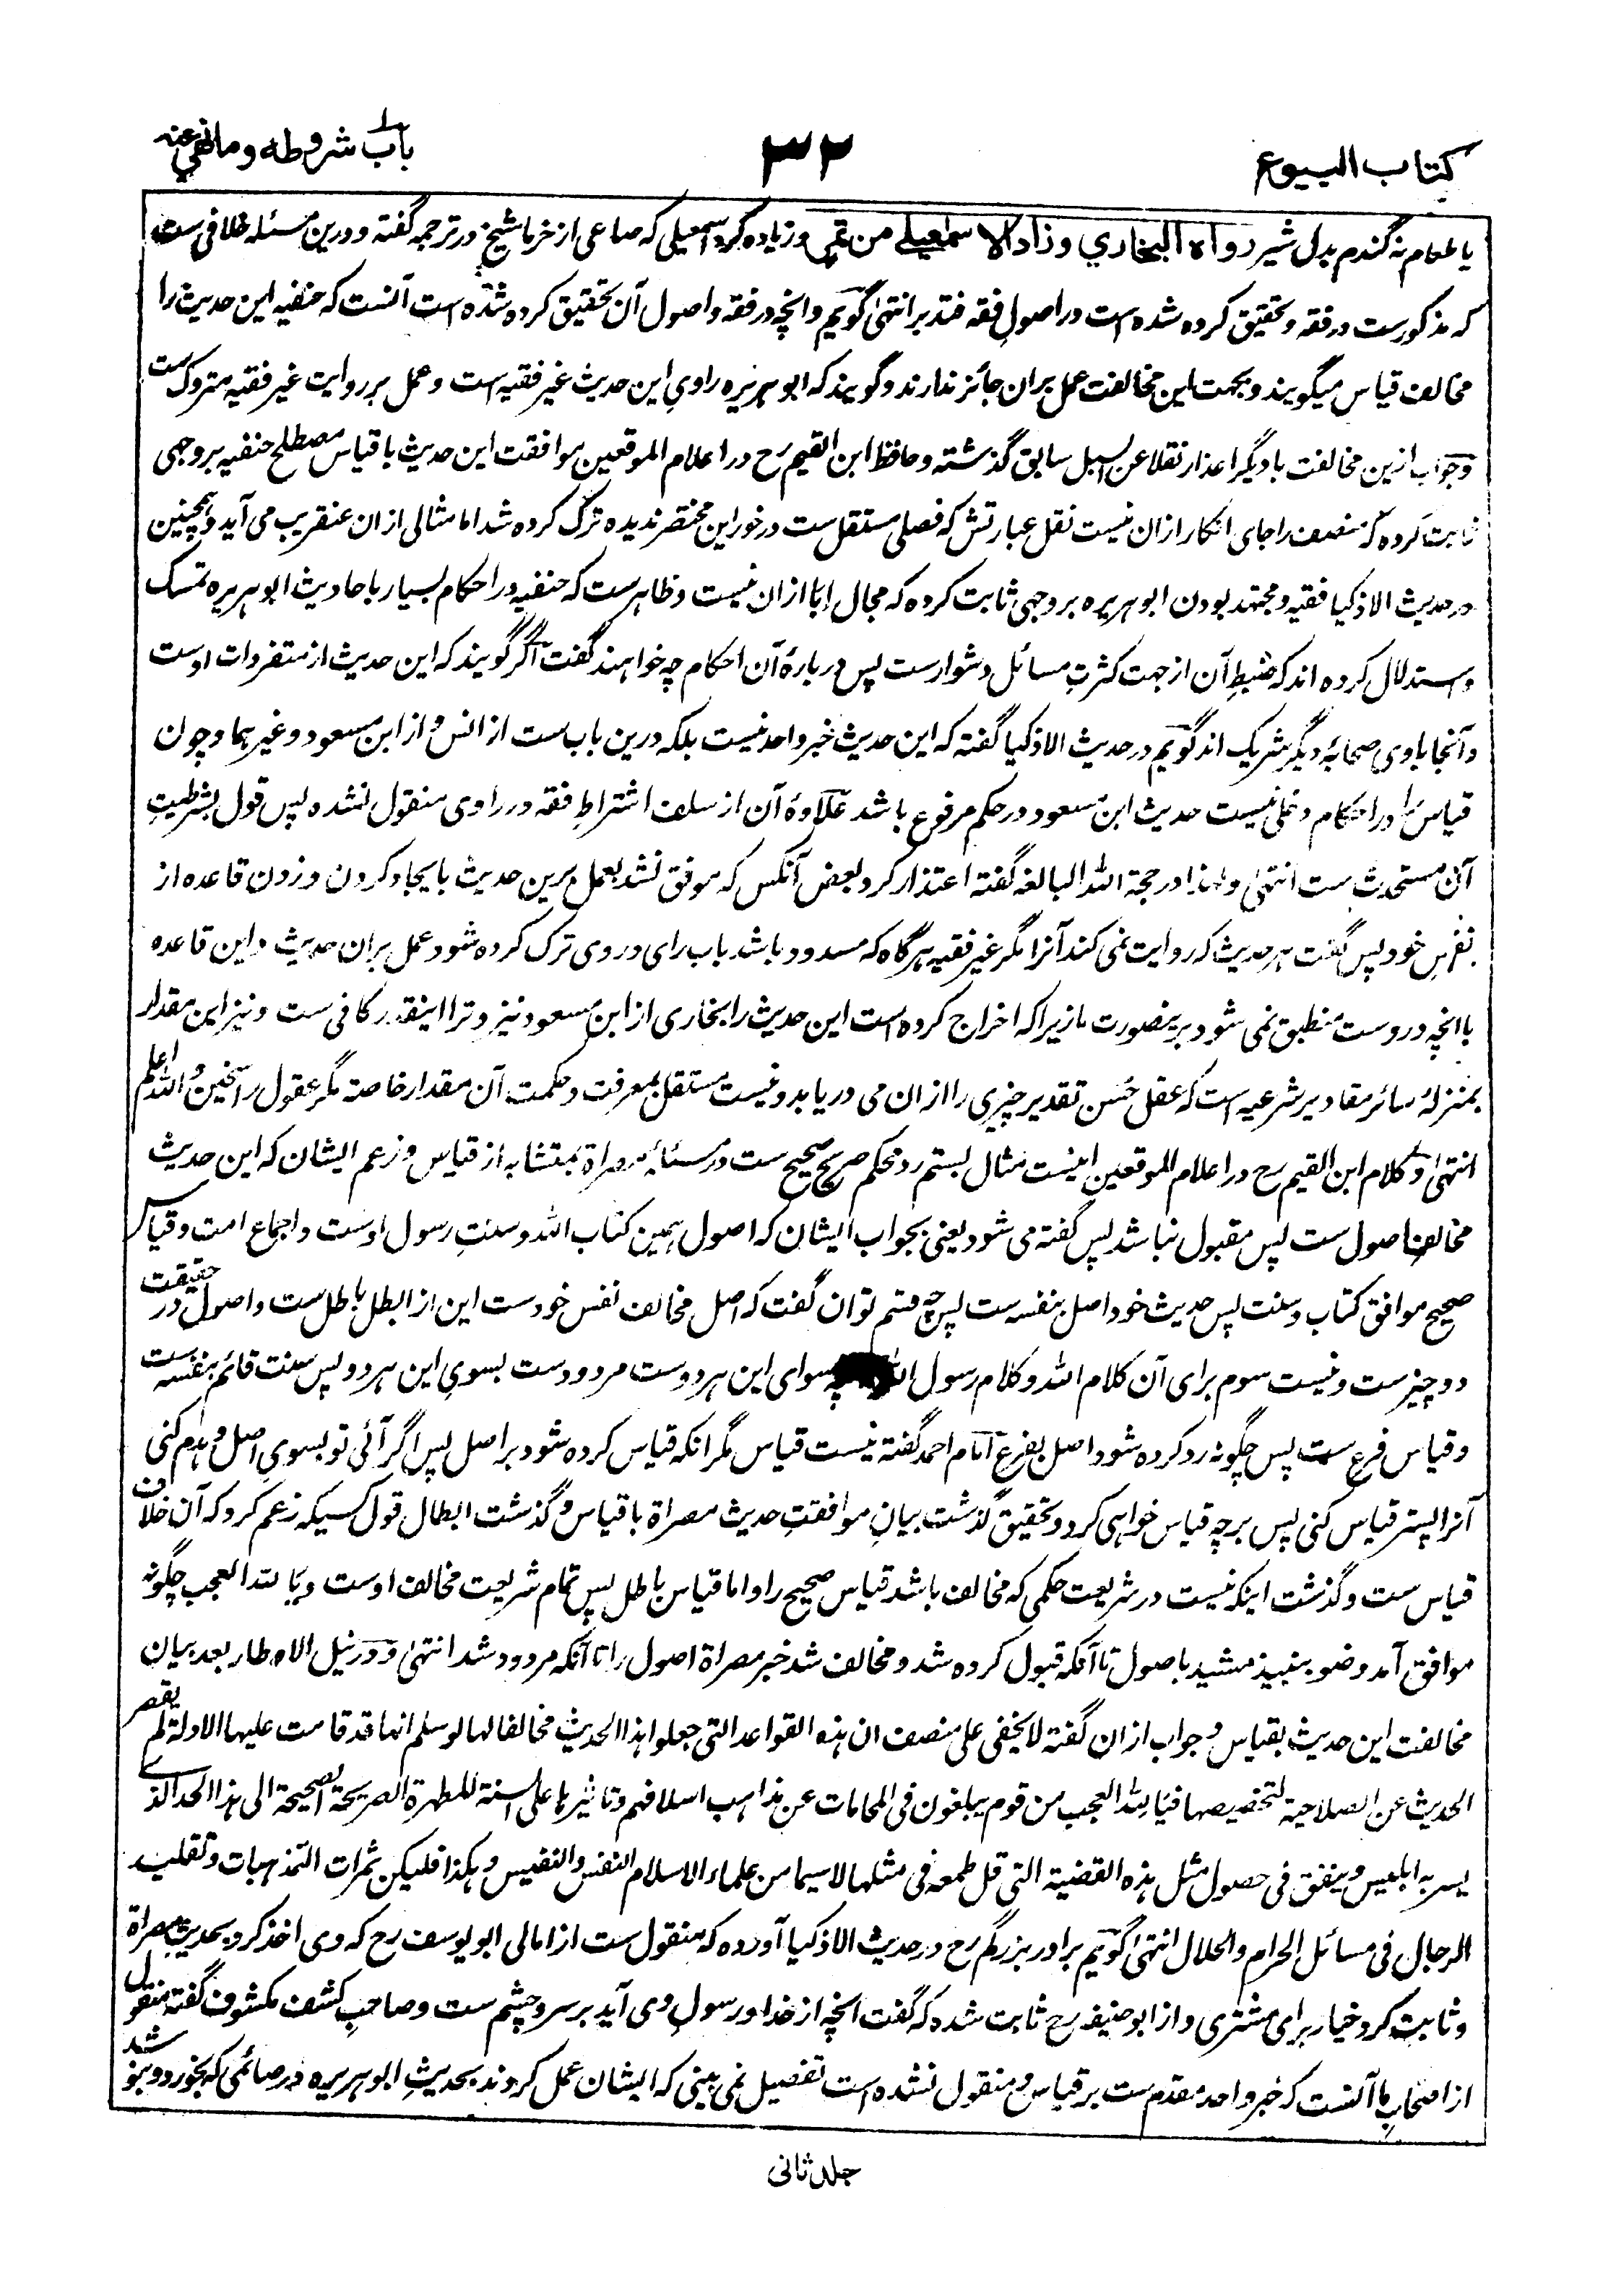 کتاب البیوع
۳۲
باب شروطه وما نهي عنه
یا طعام نه گندم بدل شیر رواه البخاري وزاد الاسمعيلي من تمر وزیاده کرد اسمعیلی که صاعی از خرما شیخ در ترجمه گفته و درین مسئله خلافی ست
که مذکورست در فقه و تحقیق کرده شده است در اصولِ فقه فتدبر انتهیٰ گویم و انچه در فقه و اصول آن تحقیق کرده شده است آنست که حنفیه این حدیث را
مخالف قیاس میگویند و بجهت این مخالفت عمل بران جائز ندارند و گویند که ابو هریره راویِ این حدیث غیر فقیه است و عمل بر روایت غیر فقیه متروک ست
و جواب ازین مخالفت با دیگر اعذار نقلا عن السبل سابق گذشته و حافظ ابن القیم رح در اعلام الموقعین موافقت این حدیث با قیاس مصطلح حنفیه بروجهی
ثابت کرده که منصف را جای انکار ازان نیست نقل عبارتش که فصلی مستقل ست در خور این مختصر ندیده ترک کرده شد اما مثالی ازان عنقریب می آید و همچنین
در حدیث الاذکیا فقیه و مجتهد بودن ابو هریره بروجهی ثابت کرده که مجال اِبا ازان نیست و ظاهرست که حنفیه در احکام بسیار با حادیث ابو هریره تمسک
و استدلال کرده اند که ضبطِ آن از جهت کثرتِ مسائل دشوارست پس در بارهٔ آن احکام چه خواهند گفت اگر گویند که این حدیث از متفردات اوست
و آنجا باوی صحابهٔ دیگر شریک اند گویم در حدیث الاذکیا گفته که این حدیث خبر واحد نیست بلکه درین باب ست از انس و از ابن مسعود و غیرهما و چون
قیاس را در احکام دخلی نیست حدیث ابن مسعود در حکم مرفوع باشد علاوهٔ آن از سلف اشتراطِ فقه در راوی منقول نشده پس قول بشرطیتِ
آن مستحدث ست انتهیٰ و لهذا در حجة الله البالغه گفته اعتذار کرد بعض آنکس که موفق نشد بعمل برین حدیث بایجاد کردن و زدن قاعده از
نفسِ خود پس گفت هر حدیث که روایت نمی کند آنرا مگر غیر فقیه هرگاه که مسدود باشد باب رای در وی ترک کرده شود عمل بران حدیث و این قاعده
با انچه دروست منطبق نمی شود برینصورت ما زیرا که اخراج کرده است این حدیث را بخاری از ابن مسعود نیز و ترا اینقدر کافی ست و نیز این مقدار
بمنزلهٔ سائر مقادیر شرعیه است که عقل حُسن تقدیر چیزی را ازان می دریابد و نیست مستقل بمعرفت و حکمت آن مقدار خاصة مگر عقول راسخین و الله اعلم
انتهیٰ و کلام ابن القیم رح در اعلام الموقعین اینست مثال بستم رد محکم صریح صحیح ست در مسئلهٔ مصراة بمتشابه از قیاس و زعم ایشان که این حدیث
مخالف اصول ست پس مقبول نباشد پس گفته می شود یعنی بجواب ایشان که اصول همین کتاب الله و سنتِ رسول اوست و اجماع امت و قیاس
صحیح موافق کتاب و سنت پس حدیث خود اصل بنفسه ست پس چه قسم توان گفت که اصل مخالف نفس خودست این از ابطل باطل ست و اصول در حقیقت
دو چیزست و نیست سوم برای آن کلام الله و کلام رسول چه سوای این هر دوست مردودست بسویِ این هر دو پس سنت قائم بنفسه ست
و قیاس فرع ست پس چگونه رد کرده شود اصل بفرع امام احمد گفته نیست قیاس مگر انکه قیاس کرده شود بر اصل پس اگر آئی تو بسویِ اصل و هدم کنی
آنرا پستر قیاس کنی پس بر چه قیاس خواهی کرد و تحقیق گذشت بیانِ موافقتِ حدیث مصراة با قیاس و گذشت ابطال قول کسیکه زعم کرد که آن خلاف
قیاس ست و گذشت اینکه نیست در شریعت حکمی که مخالف باشد قیاس صحیح را و اما قیاس باطل پس تمام شریعت مخالف اوست و یا لله العجب چگونه
موافق آمد وضو بنبیذ مشتد باصول تا آنکه قبول کرده شد و مخالف شد خبر مصراة اصول را تا آنکه مردود شد انتهیٰ و در نیل الاوطار بعد بیان
مخالفت این حدیث بقیاس و جواب ازان گفته لا یخفی علی منصف ان هذه القواعد التی جعلوا هذا الحدیث مخالفا لها لو سلم انها قد قامت علیها الادلة لم یقصر
الحدیث عن الصلاحیة لتخصیصها فیا لله العجب من قوم یبلغون فی المحامات عن مذاهب اسلافهم و تاثیرها علی السنة المطهرة الصریحة الصحیحة الی هذا الحد الذی
یسر به ابلیس و ینفق فی حصول مثل هذه القضیة التی قل طمعه فی مثلها لا سیما من علماء الاسلام النفس والنفیس و هکذا فلیکن ثمرات التمذهبات و تقلید
الرجال فی مسائل الحرام و الحلال انتهیٰ گویم برادر بزرگم رح در حدیث الاذکیا آورده که منقول ست از امالی ابو یوسف رح که وی اخذ کرد بحدیث مصراة
و ثابت کرد خیار برای مشتری و از ابو حنیفه رح ثابت شده که گفت انچه از خدا و رسولِ وی آید بر سر و چشم ست و صاحبِ کشف مکشوف گفته منقول
از اصحابِ ما آنست که خبر واحد مقدم ست بر قیاس و منقول نشده است تفصیل نمی بینی که ایشان عمل کردند بحدیثِ ابو هریره در صائمی که بخورد و بنوشد
جلد ثانی